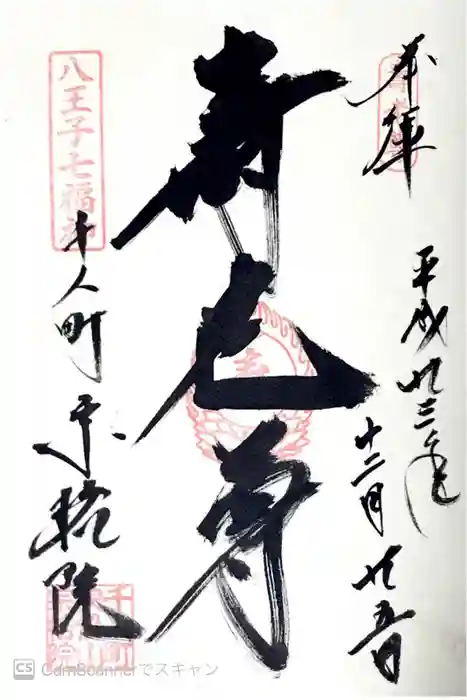 奉拝
平成廿三年
十二月廿五日
寿老尊
八王子七福神
千人町 宗格院
CS CamScannerでスキャン